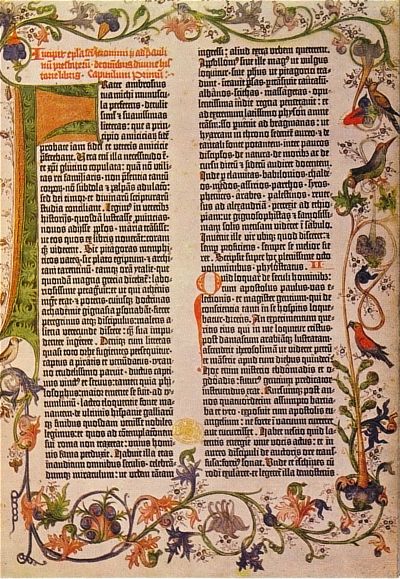 Incipit ep̄la sācti ieronimi ad pauli-
nū presbiterū de omnibꝫ diuine his-
torie libris. Capitulum Primū.
Frater ambrosius
tua michi munuscu-
la perferens· detulit
sil̄ et suauissimas
litteras: que a prin-
cipio amicicias· fidē
probate iam fidei et veteris amicicie
p̄ferebant. Vera em̄ illa necessitudo ē·
et xp̄i glutino copulata: quā nō utili-
tas rei familiaris· nō p̄ntia tantum
corporū· nō sbdola et palpās adulacō·
sed dei timor· et diuinarū scripturarū
studia conciliant. Legim̄ in veteribꝫ
historijs· quosdā lustrasse ꝓuincias·
nouos adisse pp̄los· maria trāsisse·
ut eos quos ex libris nouerāt: coram
qꝫ viderēt. Sic pitagoras memphi-
ticos vates· sic plato egiptum· et archi-
tam tarentinū· eandēqꝫ orā ytalie· que
quondā magna grecia dicebat̄: labo-
riosissime peragrauit: ut qui athenis
mgr̄ erat· et potens· cuiusqꝫ doctrinas
achademie gignasia p̄sonabāt· fieret
peregrinus atqꝫ discipulus· malens a-
liena verecunde discere: q̄ sua īpu-
denter ingerere. Deniqꝫ cum litteras
quasi toto orbe fugientes persequit̄·
captus a piratis et venūdatus· tyran-
no crudelissimo paruit· ductus capti-
uus vinct̄ et seruus: tamen quia phi-
losophus: maior emente se fuit· ad ty-
tumliuiū· lacteo eloquentie fonte ma-
nantem· de ultimis hispanie galliarū-
qꝫ finibus quosdam venisse nobiles
legimus: et quos ad cōtemplationē
sui roma non traxerat: unius homi-
nis fama perduxit. Habuit illa etas
inauditum omnibus seculis· celebrā-
dumqꝫ miraculum: ut urbem tātam
ingressi: aliud extra urbem quererent.
Apollonius siue ille magꝰ ut vulgus
loquitur· siue phūs ut pitagorici tra-
dunt· intrauit persas· ptrāsiuit caucasū·
albānos· scithas· massagetas· opu-
lentissima indie regna penetrauit: et
ad extremum latissimo physon amne
trāsmisso puenit ad bragmanas: ut
hyarcam in throno sedētē aureo· et de
tantali fonte potantem· inter paucos
discipulos· de natura· de moribus ac de
cursu dierū et siderū audiret docentem.
Inde p elamitas· babilonios· chalde-
os· medos· assirios· parthos· syros·
phenices· arabes· palestinos· reuer-
sus ad alexandriā: perrexit ad ethio-
piam· ut gignosophistas et famosissi-
mam solis mensam videret ī sabulo.
Inuenit ille vir ubiqꝫ quod disceret: et
semp proficiens· semper se melior fie-
ret. Scripsit super hoc plenissime octo
voluminibus· phylostratus. II
Quid loquar de seculi hominibꝫ:
cum apostolus paulus· vas e-
lectionis· et magister gentium· qui de
conscientia tanti in se hospitis loque-
batur· dicens. An experimentum que-
ritis eius qui in me loquitur cristus·
post damascum arabiāqꝫ lustratam·
ascenderit iherosolimā ut videret petrū
et māserit apud eum diebus quinde-
cim. Hoc enim misterio ebdōmadis et o-
gdoadis: futurꝰ gentium predicator
instruendus erat. Rursumqꝫ post an-
nos quatuordecim assumpto barna-
ba et tyto· exposuit cum apostolis eu-
angelium: ne forte ī vacuum curreret
aut cucurrisset. Habet nescio quid la-
tentis energie· viue vocis actus: et in
aures discipuli de auctoris ore trans-
fusa: fortiꝰ sonat. Unde et eschines cū
rodi exularet· et legeret̄ illa demostenis